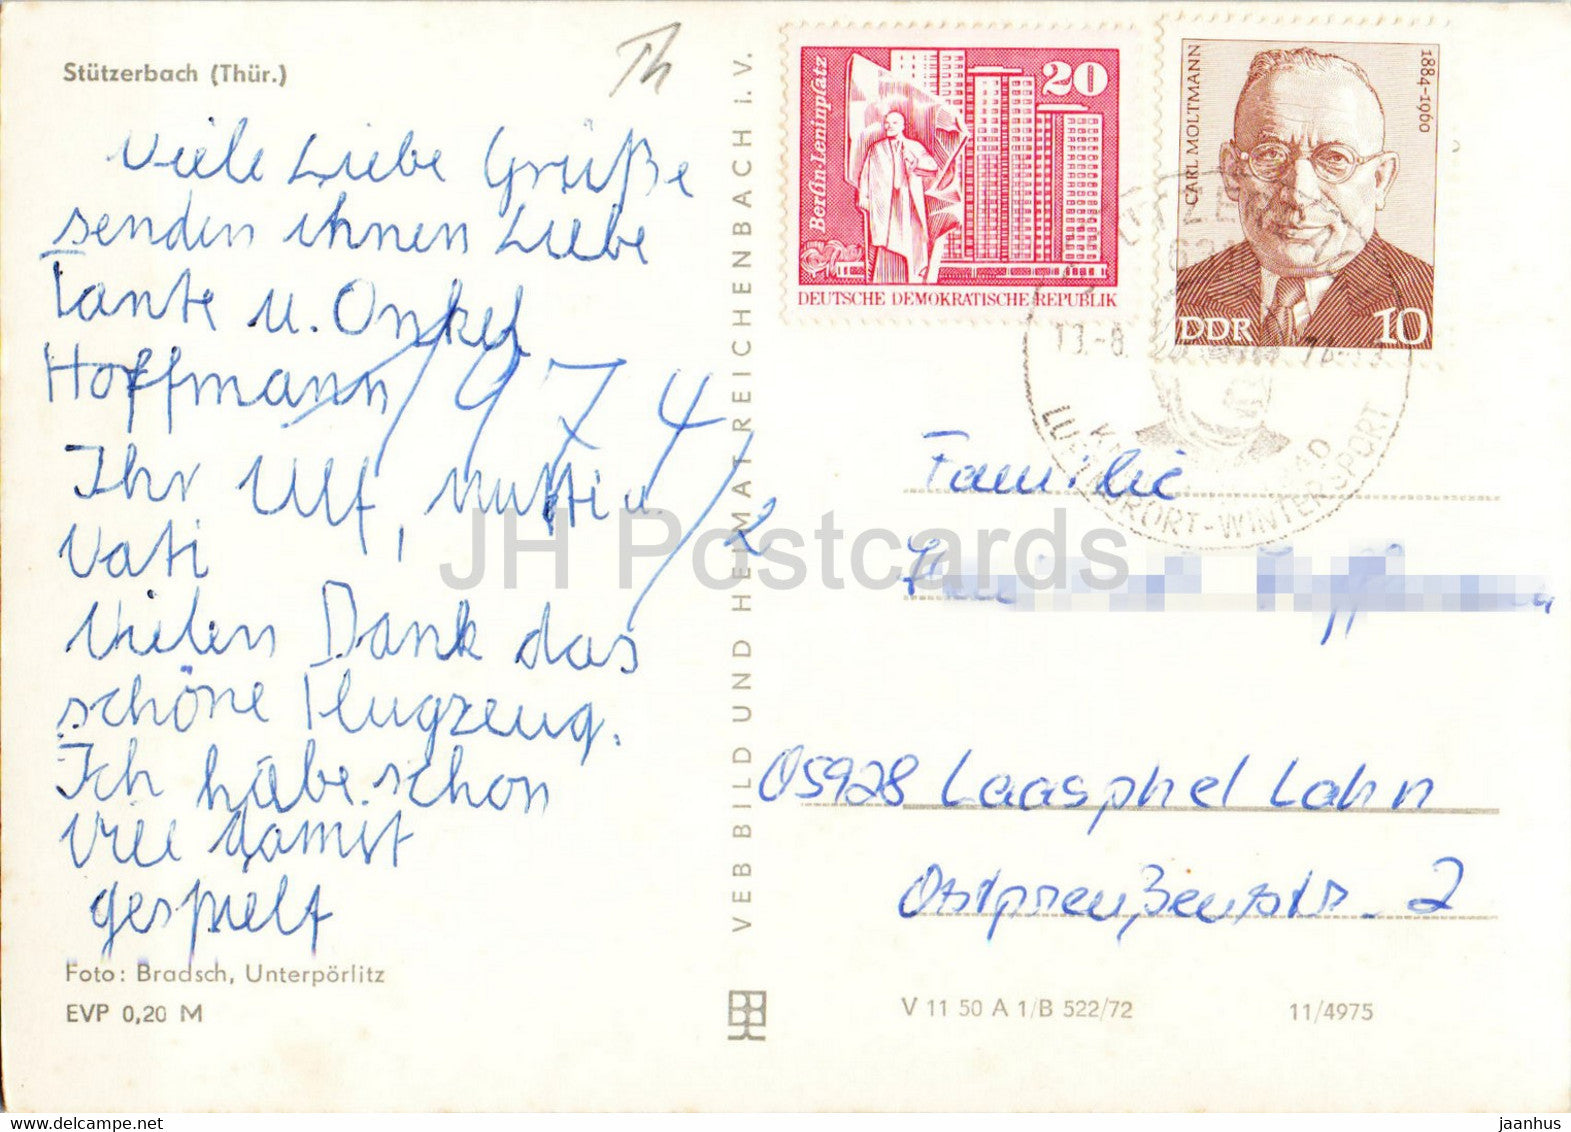 Stützerbach (Thür.)
Th
Viele Liebe Grüße
senden ihnen Liebe
Tante u. Onkel
Hoffmann
1974/2
Ihr Ulf, Mutti u.
Vati
Vielen Dank das
schöne Flugzeug.
Ich habe schon
viel damit
gespielt
Foto: Bradsch, Unterpörlitz
EVP 0,20 M
VEB BILD UND HEIMAT REICHENBACH i. V.
Berlin-Leninplatz
20
DEUTSCHE DEMOKRATISCHE REPUBLIK
CARL MOLTMANN
1884-1960
DDR 10
LUFTKURORT-WINTERSPORT
Familie
05928 Laasphe/Lahn
Ostpreußenstr. 2
V 11 50 A 1/B 522/72
11/4975
JH Postcards
jaanhus